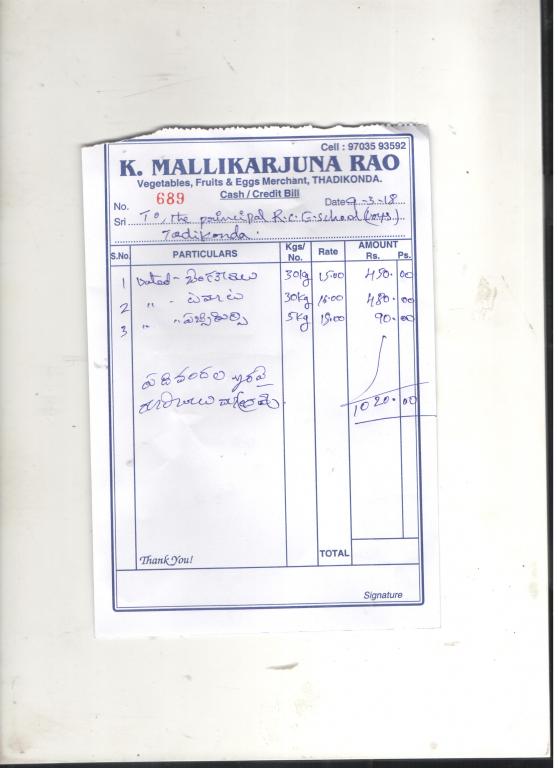 Cell : 97035 93592
K. MALLIKARJUNA RAO
Vegetables, Fruits & Eggs Merchant, THADIKONDA.
Cash / Credit Bill
No. 689 Date 9-3-18
Sri To, the principal R.C.E. School (Boys).
Tadikonda.
S.No. PARTICULARS Kgs/No. Rate AMOUNT Rs. Ps.
1 వంకాయలు 30kg 15.00 450.00
2 " - టమాట 30kg 16.00 480.00
3 " " పచ్చిమిర్చి 5kg 18.00 90.00
పది వందల ఇరవై
రూపాయలు మాత్రమే. 1020.00
Thank You! TOTAL
Signature